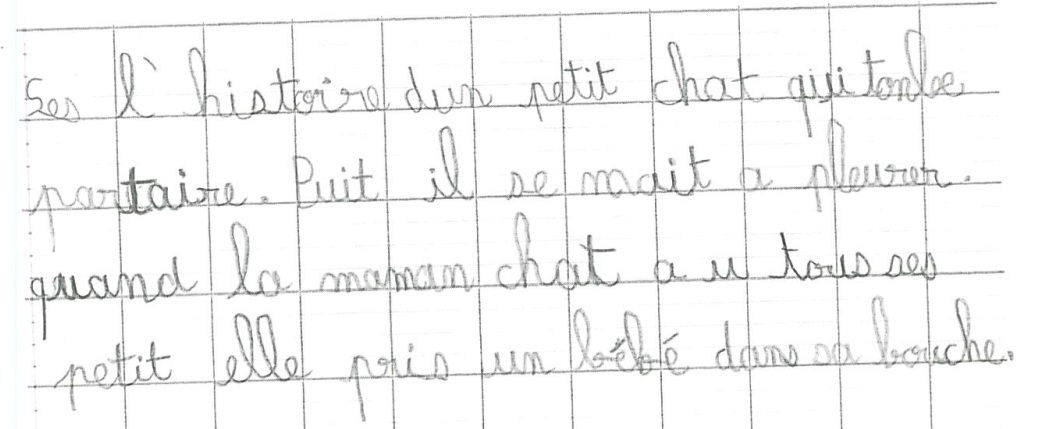 Ses l'histoire dun petit chat qui tonbe
partaire. Puit il se mait a pleurer.
quand la maman chat a u tous ses
petit elle pris un bébé dans sa bouche.